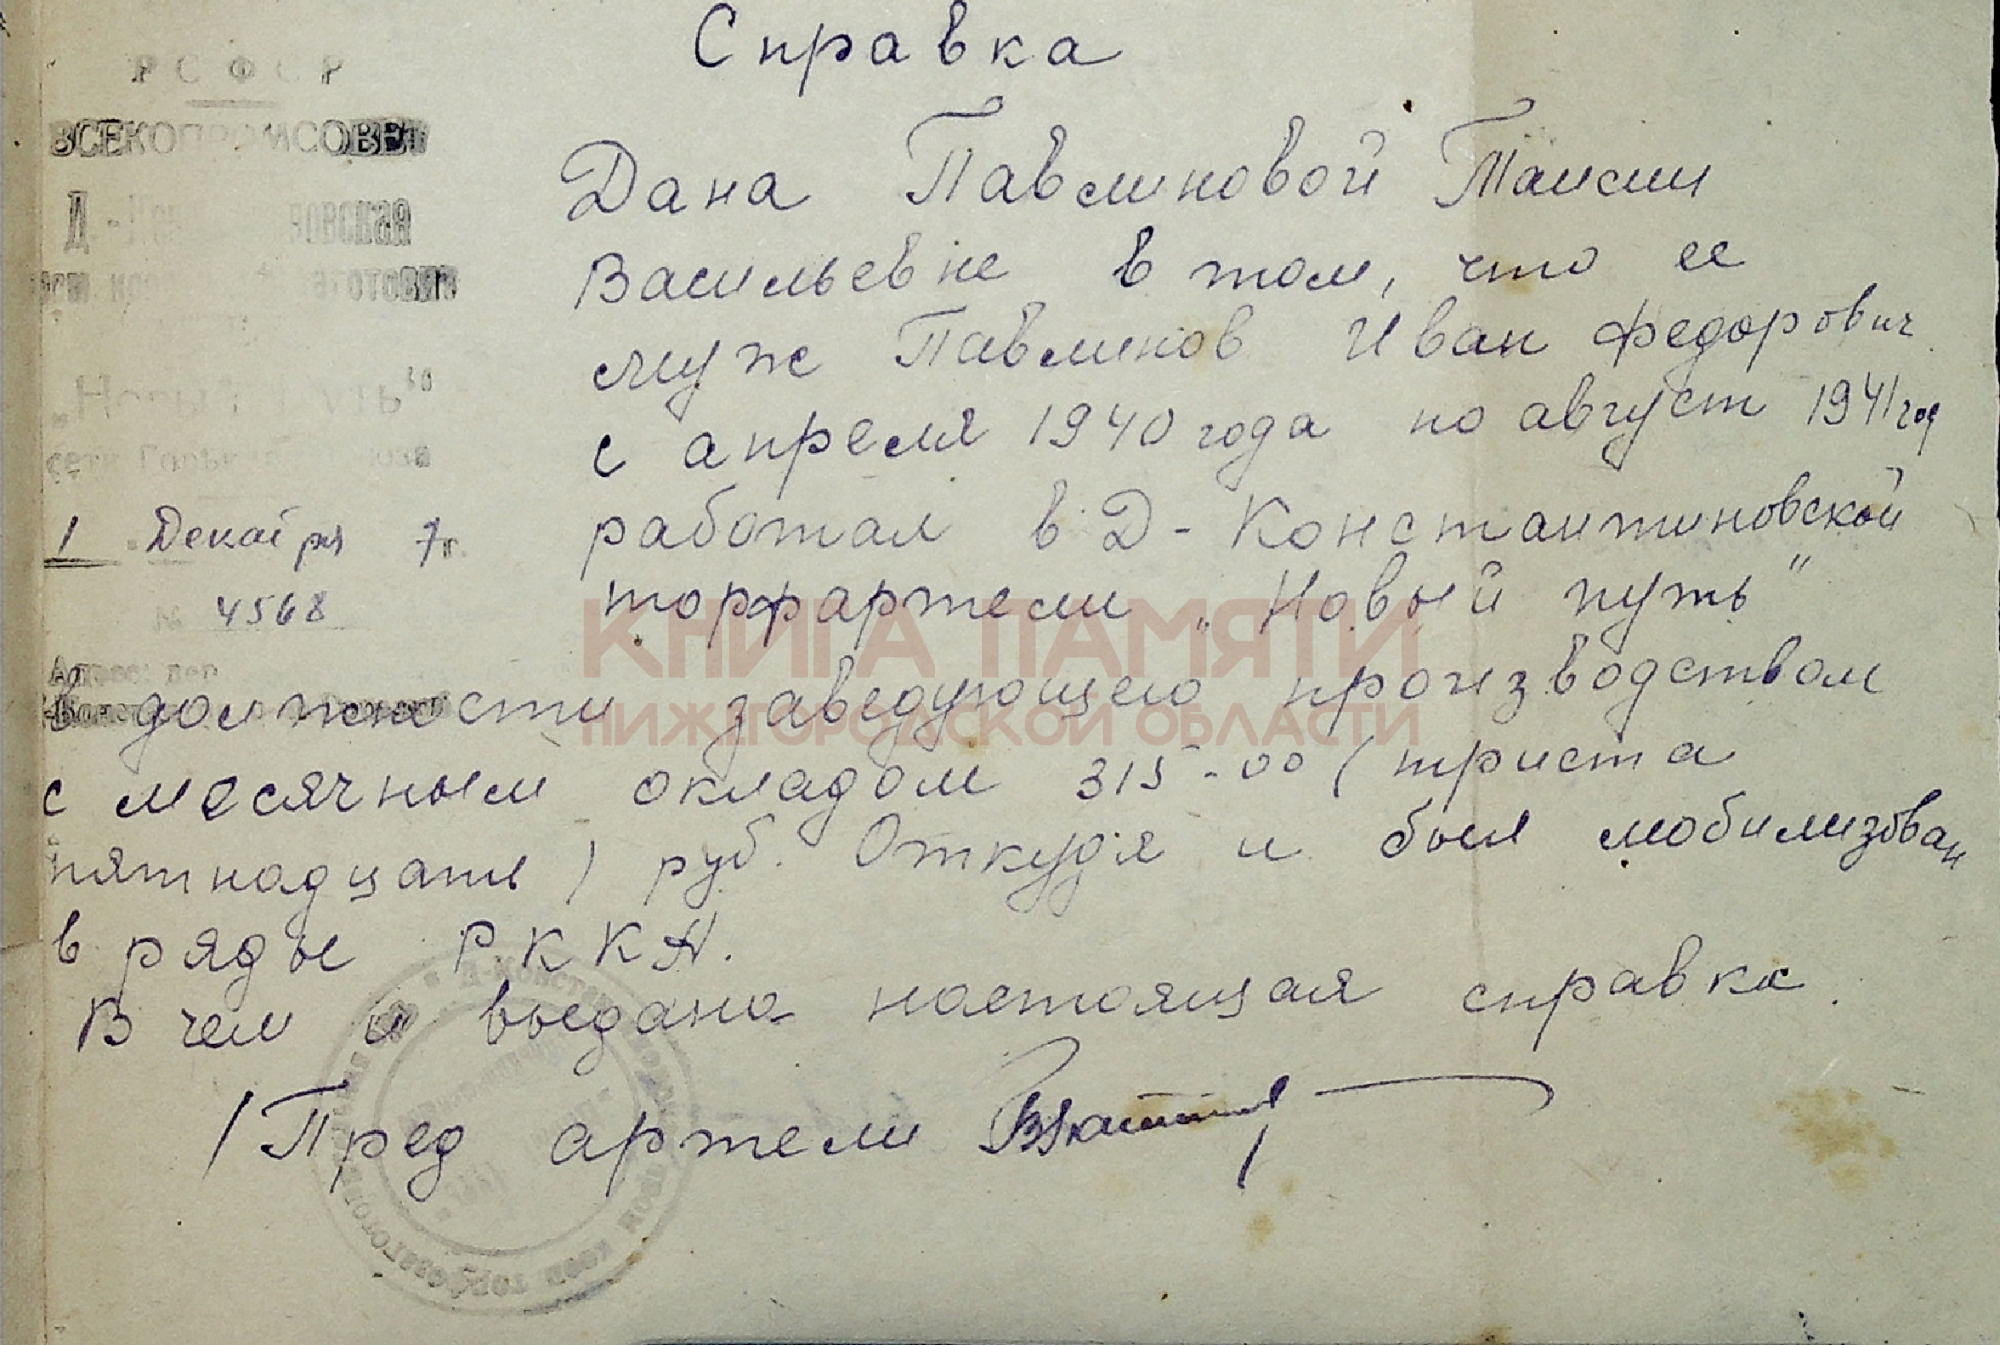 Справка
РСФСР
ВСЕКОПРОМСОВЕТ
Д-
"Новый путь"
1 Декабря 7г.
№ 4568
Адрес: дер.
Дана Павлиновой Таисии
Васильевне в том, что ее
муж Павлинов Иван Федорович
с апреля 1940 года по август 1941 год
работал в Д-Константиновской
торфартели „Новый путь"
в должности заведующего производством
с месячным окладом 315-00 (триста
пятнадцать) руб. Откудя и был мобилизован
в ряды РККА.
В чем и выдана настоящая справка.
/Пред артели
КНИГА ПАМЯТИ
НИЖЕГОРОДСКОЙ ОБЛАСТИ